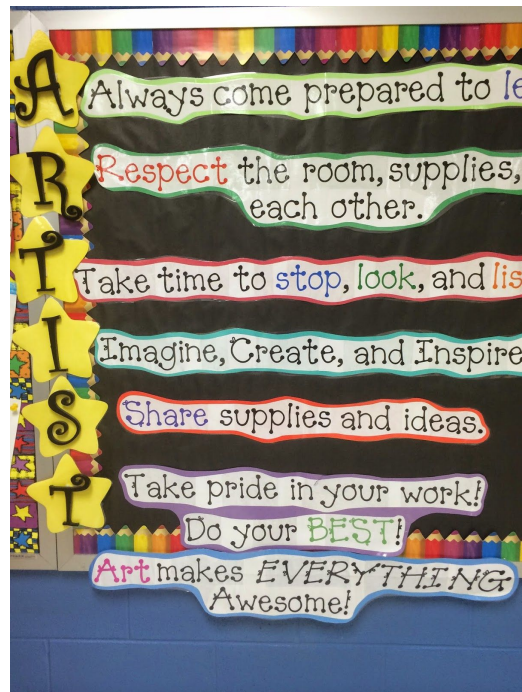 A
Always come prepared to le
R
Respect the room, supplies,
each other.
T
Take time to stop, look, and lis
I
Imagine, Create, and Inspire
S
Share supplies and ideas.
T
Take pride in your work!
Do your BEST!
Art makes EVERYTHING
Awesome!